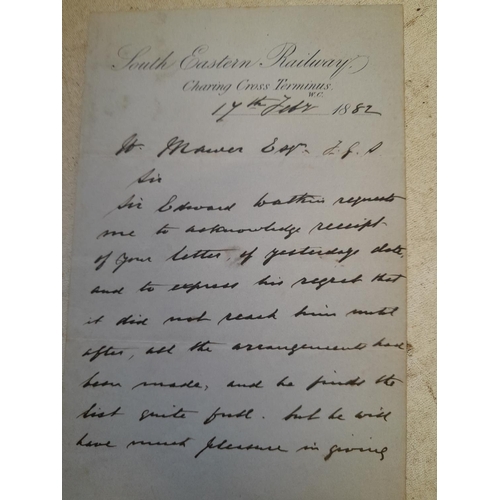 South Eastern Railway.
Charing Cross Terminus.
W.C.
17th Feby 1882
W. Mawer Esqr. F.G.S
Sir
Sir Edward Watkin requests
me to acknowledge receipt
of your letter, of yesterdays date,
and to express his regret that
it did not reach him until
after, all the arrangements had
been made, and he finds the
list quite full. but he will
have much pleasure in giving